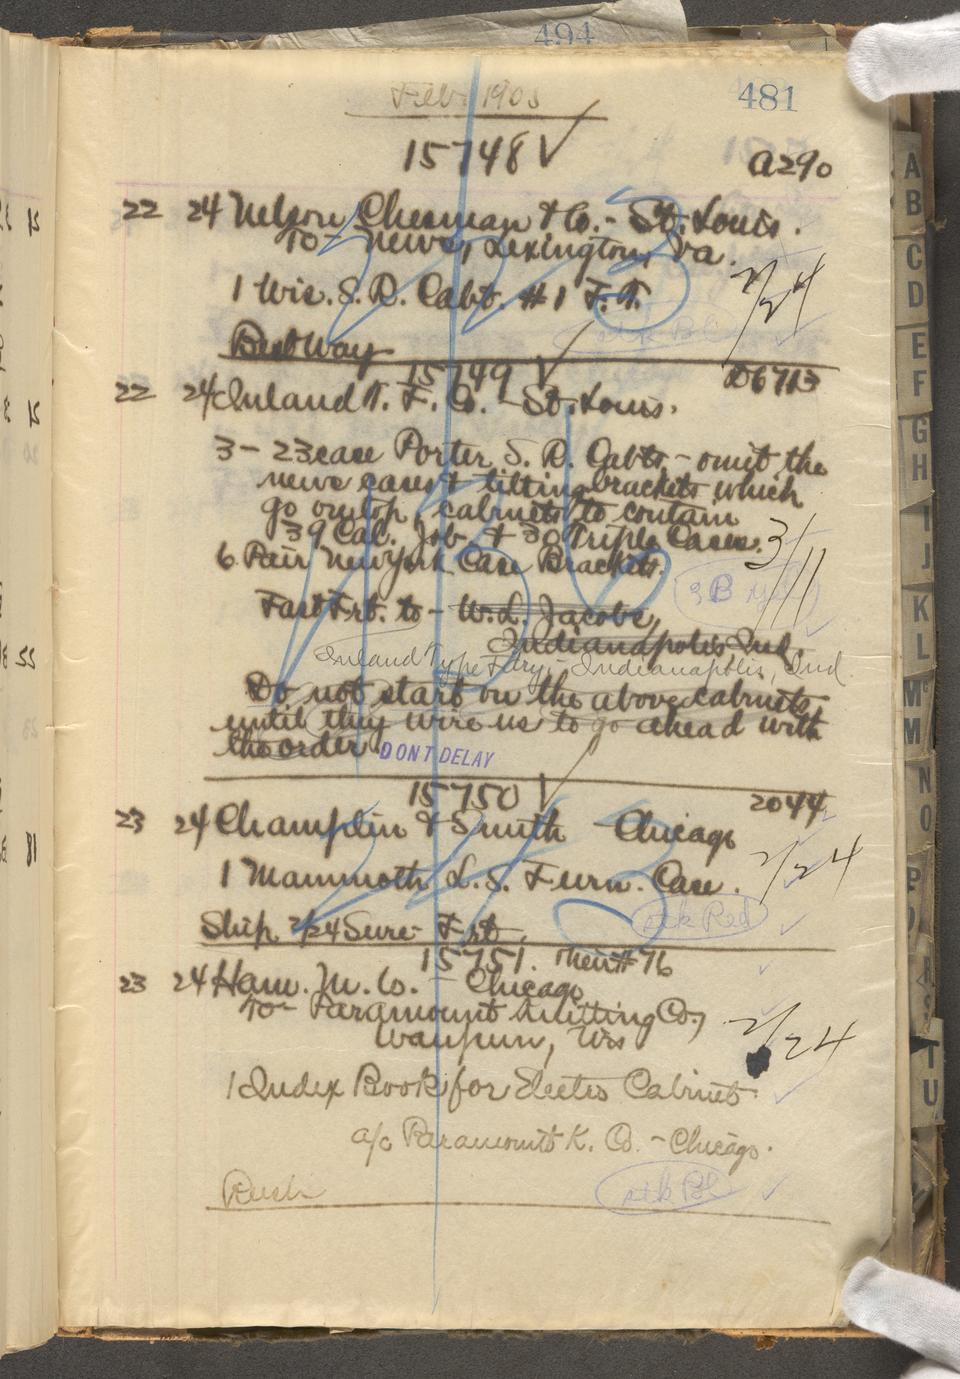 494
Feb. 1908
481
15748 ✓
A290
22 24 Nelson Chesman & Co. - St. Louis.
To - News, Lexington, Va.
1 Wis. S. D. Cabt. #1 F. T.
2/24
Best Way
15749 ✓
D6713
22 24 Inland T. F. Co. - St. Louis.
3 - 23 case Porter S. D. Cabts - omit the
news cases & tilting brackets which
go on top, cabinets to contain
39 Cal. Job & 30 Triple Cases.
3/11
6 Pair New York Case Brackets.
Fast Frt. to - W. L. Jacobs,
Indianapolis Ind.
Inland Type Fdry, - Indianapolis, Ind.
Do not start on the above cabinets,
until they wire us to go ahead with
the order
DONT DELAY
15750 ✓
2044
23 24 Champlin & Smith - Chicago
1 Mammoth L. S. Furn. Case.
2/24
stk Red
Ship 2/24 Sure - Frt.
15751. Their # 76
23 24 Ham. M. Co. - Chicago
To - Paramount Knitting Co.,
Waupun, Wis
2/24
1 Index Book for Electro Cabinet
a/c Paramount K. Co. - Chicago.
Rush
A
B
C
D
E
F
G
H
I
J
K
L
Mc
M
N
O
P
R
S
T
U